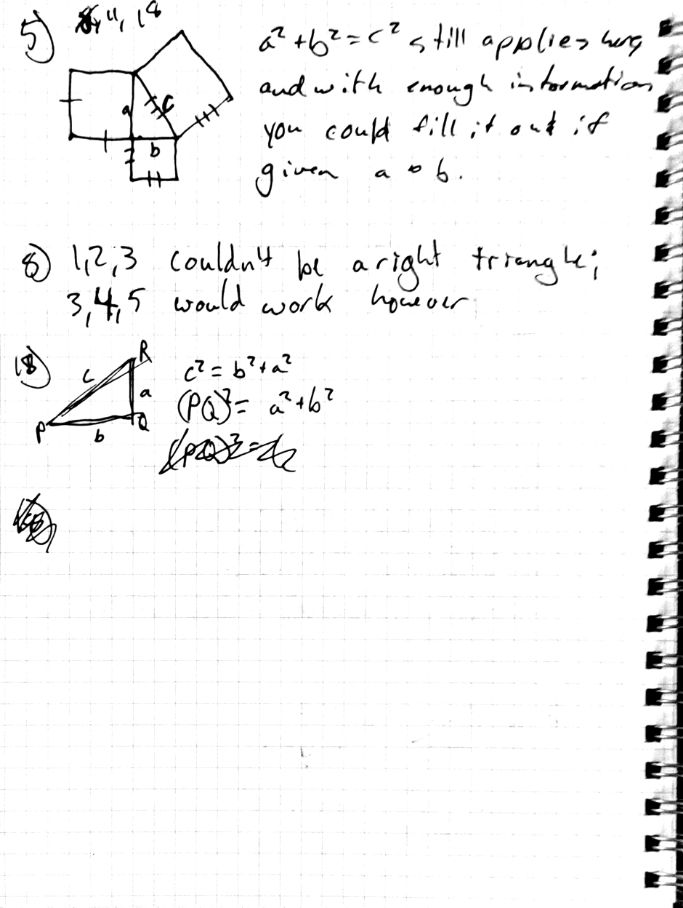 5)
11, 18
a²+b²=c² still applies here
and with enough information
you could fill it out if
given a b.
a
c
b
8) 1,2,3 couldn't be a right triangle;
3,4,5 would work however
18)
R
c
a
P
b
Q
c² = b²+a²
(PQ)² = a²+b²